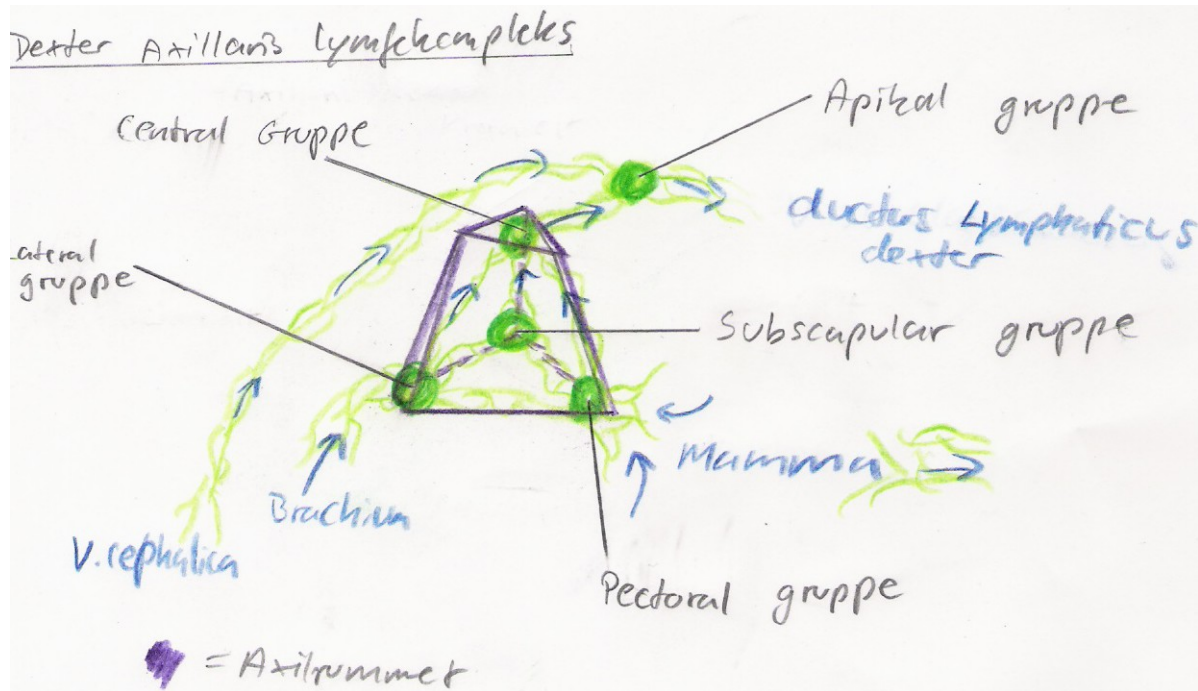 Dexter Axillaris Lymfekompleks
Central Gruppe
Apikal gruppe
ductus Lymphaticus
dexter
ateral
gruppe
Subscapular gruppe
Mamma
Brachium
V. cephalica
Pectoral gruppe
= Axilrummet